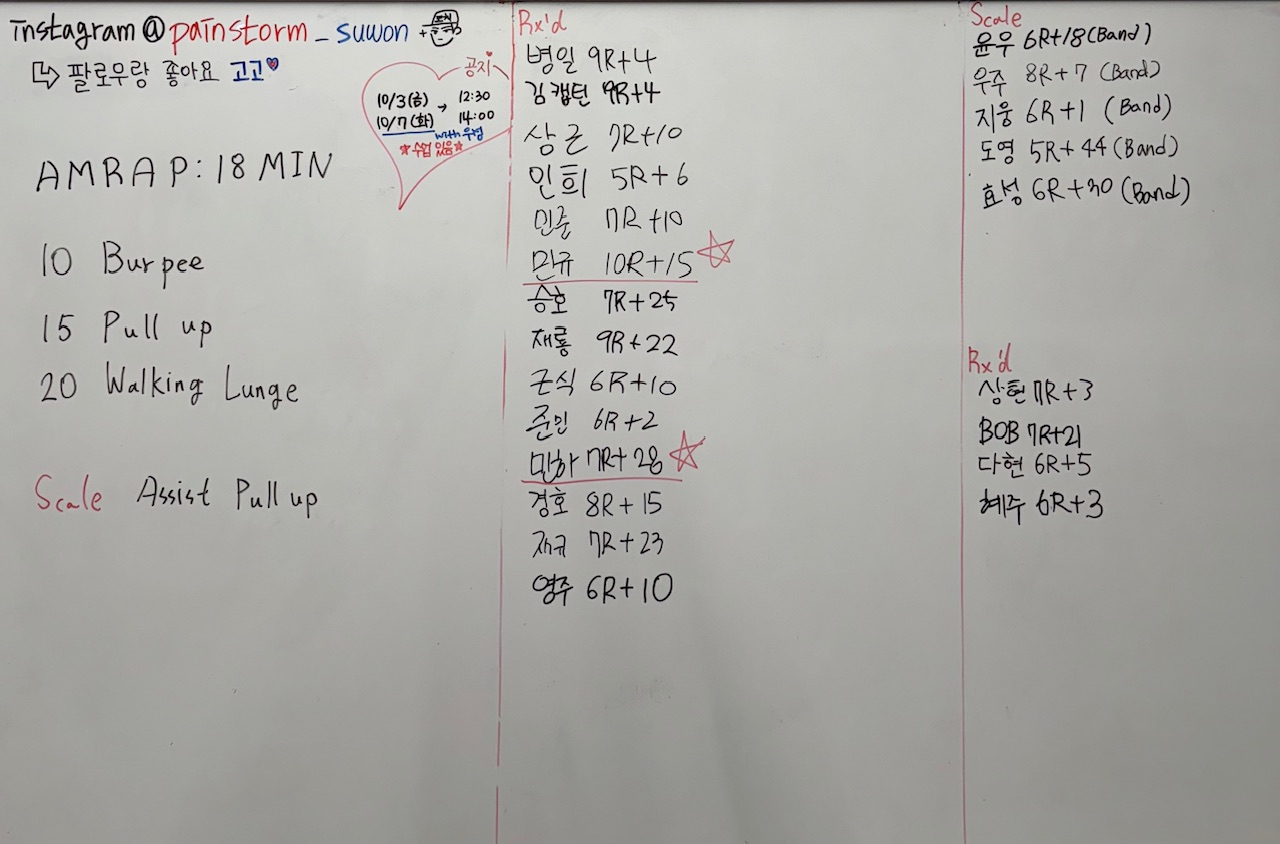 instagram@painstorm_suwon +
팔로우랑 좋아요 고고
공지
10/3(금) → 12:30
10/7(화) 14:00
with 우섭
☆수업 있음☆
AMRAP: 18 MIN
10 Burpee
15 Pull up
20 Walking Lunge
Scale Assist Pull up
Rx'd
병일 9R+4
김캡틴 9R+4
상근 7R+10
인희 5R+6
민준 7R+10
민규 10R+15
승호 7R+25
재룡 9R+22
근식 6R+10
준민 6R+2
민하 7R+28
경호 8R+15
재규 7R+23
영주 6R+10
Scale
윤우 6R+18(Band)
우주 8R+7 (Band)
지웅 6R+1 (Band)
도영 5R+44(Band)
효성 6R+30(Band)
Rx'd
상현 7R+3
BOB 7R+21
다현 6R+5
혜주 6R+3